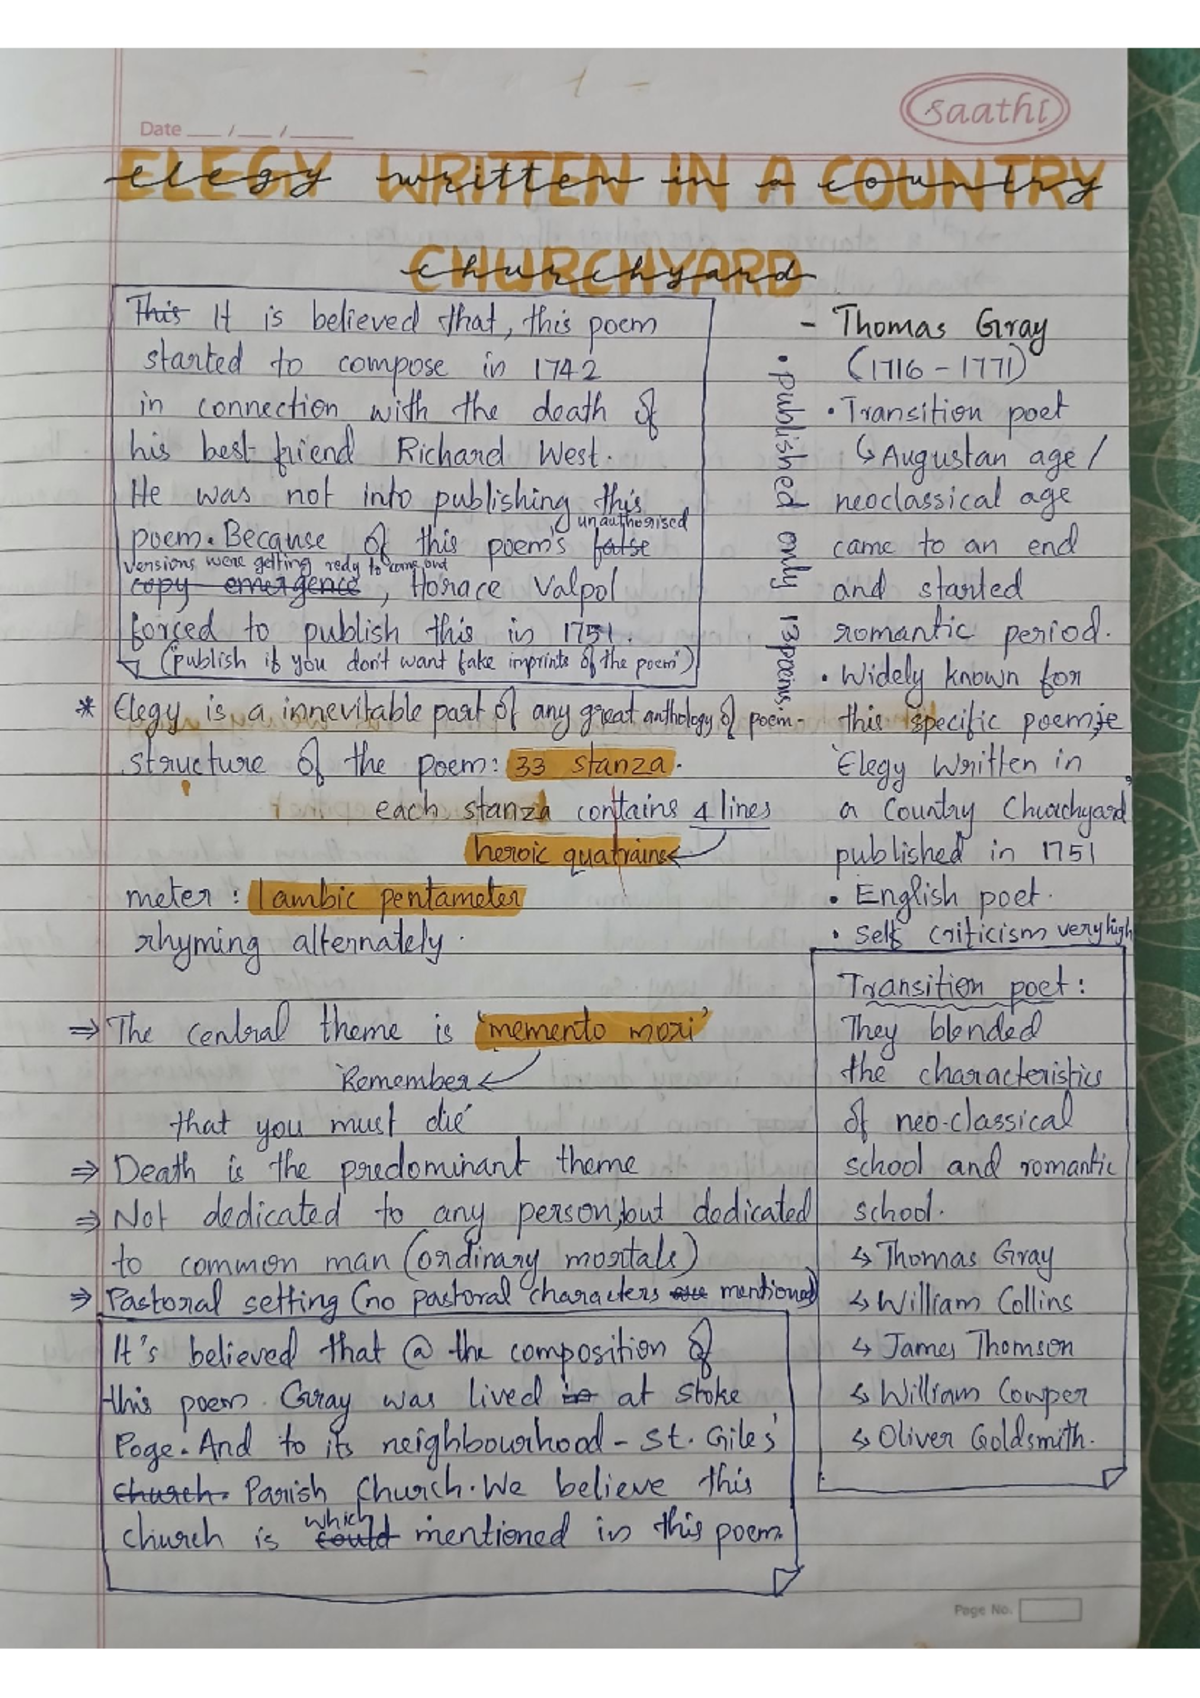 saathi
Date __/__/____
ELEGY WRITTEN IN A COUNTRY
CHURCHYARD
This It is believed that, this poem
started to compose in 1742
in connection with the death of
his best friend Richard West.
He was not into publishing this
unauthorised
poem. Because of this poem's false
versions were getting redy to come out
copy emergence, Horace Valpol
forced to publish this in 1751.
("publish if you don't want fake imprints of the poem")
- Thomas Gray
(1716 - 1771)
• Transition poet
↳ Augustan age /
neoclassical age
came to an end
and started
romantic period.
• Widely known for
this specific poem,ie
'Elegy Written in
a Country Churchyard'
published in 1751
• English poet.
• Self criticism very high
• published only 13 poems
* Elegy is a innevitable part of any great anthology of poem-
structure of the poem: 33 stanza.
each stanza contains 4 lines
heroic quatrains←
meter : Iambic pentameter
rhyming alternately.
⇒ The central theme is 'memento mori'
'Remember←
that you must die'
⇒ Death is the predominant theme
⇒ Not dedicated to any person,but dedicated
to common man (ordinary mortals)
⇒ Pastoral setting (no pastoral characters are mentioned)
Transition poet :
They blended
the characteristics
of neo-classical
school and romantic
school.
↳ Thomas Gray
↳ William Collins
↳ James Thomson
↳ William Cowper
↳ Oliver Goldsmith.
It's believed that @ the composition of
this poem. Gray was lived in at Stoke
Poge. And to its neighbourhood - St. Giles'
church. Parish Church. We believe this
which
church is could mentioned in this poem
Page No.